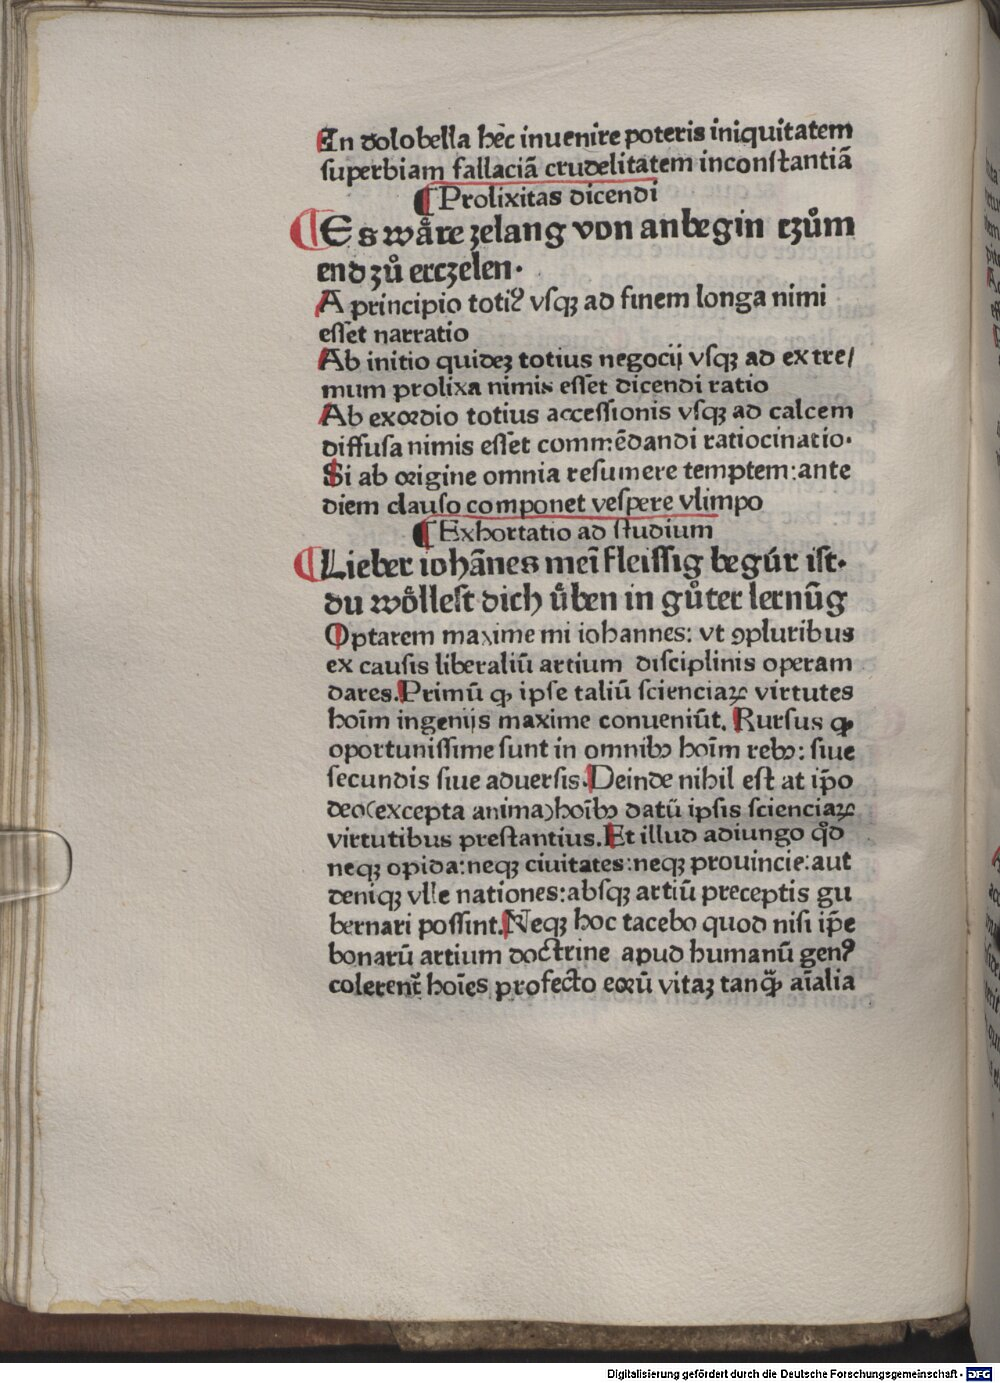 In dolobella hēc inuenire poteris iniquitatem
superbiam fallaciā crudelitatem inconſtantiā
¶ Prolixitas dicendi
¶ Es wåre zelang von anbegin czům
end zů erczelen.
A principio totiꝰ vſqꝫ ad finem longa nimi
eſſet narratio
Ab initio quideꝫ totius negocij vſqꝫ ad extre/
mum prolixa nimis eſſet dicendi ratio
Ab exoꝛdio totius acceſſionis vſqꝫ ad calcem
diffuſa nimis eſſet commēdandi ratiocinatio.
Si ab oꝛigine omnia reſumere temptem: ante
diem clauſo componet veſpere vlimpo
¶ Exhortatio ad ſtudium
¶ Lieber iohānes mei᷑ fleiſſig begúr iſt.
du wo̊lleſt dich ůben in gůter lernūg
Optarem maxime mi iohannes: vt ꝯpluribus
ex cauſis liberaliū artium diſciplinis operam
dares. Primū ꝙ ipſe taliū ſcienciaꝝ virtutes
hoīm ingenijs maxime conueniūt. Rurſus ꝙ
oportuniſſime ſunt in omnibꝫ hoīm rebꝫ: ſiue
ſecundis ſiue aduerſis. Deinde nihil eſt at ip̄o
deo (excepta anima) hoībꝫ datū ipſis ſcienciaꝝ
virtutibus preſtantius. Et illud adiungo qd̊
neqꝫ opida: neqꝫ ciuitates: neqꝫ prouincie: aut
deniqꝫ vlle nationes: abſqꝫ artiū preceptis gu
bernari poſſint. Neqꝫ hoc tacebo quod niſi ip̄e
bonarū artium doctrine apud humanū genꝰ
colerent᷑ hoīes profecto eoꝛū vitaꝫ tanqᷓ aīalia
Digitalisierung gefördert durch die Deutsche Forschungsgemeinschaft - DFG